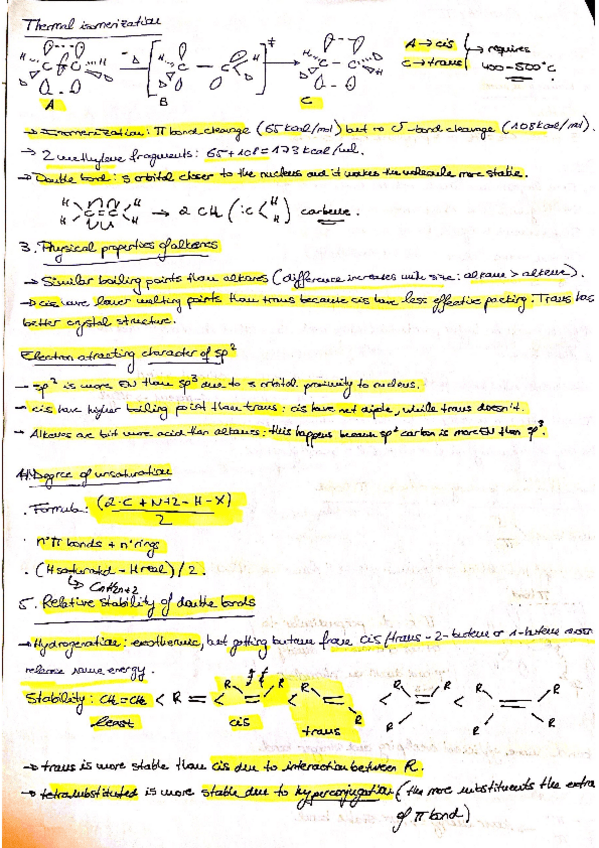 Thermal isomerization
A → cis
C → trans
requires
400-500°C
A
B
C
→ Isomerization: π bond cleavage (65 kcal/mol) but no σ-bond cleavage (108 kcal/mol).
→ 2 methylene fragments: 65+108=173 kcal/mol.
→ Double bond: s orbital closer to the nucleus and it makes the molecule more stable.
→ 2 CH (:C<H H) carbene.
3. Physical properties of alkenes
→ Similar boiling points than alkanes (difference increases with size: alkane > alkene).
→ cis have lower melting points than trans because cis have less effective packing: Trans has
better crystal structure.
Electron atracting character of sp²
→ sp² is more EN than sp³ due to s orbital proximity to nucleus.
→ cis have higher boiling point than trans: cis have net dipole, while trans doesn't.
→ Alkenes are bit more acid than alkanes: this happens because sp² carbon is more EN than sp³.
4. Degree of unsaturation
· Formula: (2·C + N+2 - H - X)
2
· n°π bonds + n°rings
· (Hsaturated - Hreal)/2.
↳ CnH2n+2
5. Relative stability of double bonds
→ Hydrogenation: exothermic, but getting butane from cis/trans-2-butene or 1-butene
release same energy.
Stability: CH2=CH2 < R = < R R < R R < R R R < R R R R
least
cis
trans
→ trans is more stable than cis due to interaction between R.
→ tetrasubstituted is more stable due to hyperconjugation (the more substituents the
of π bond)